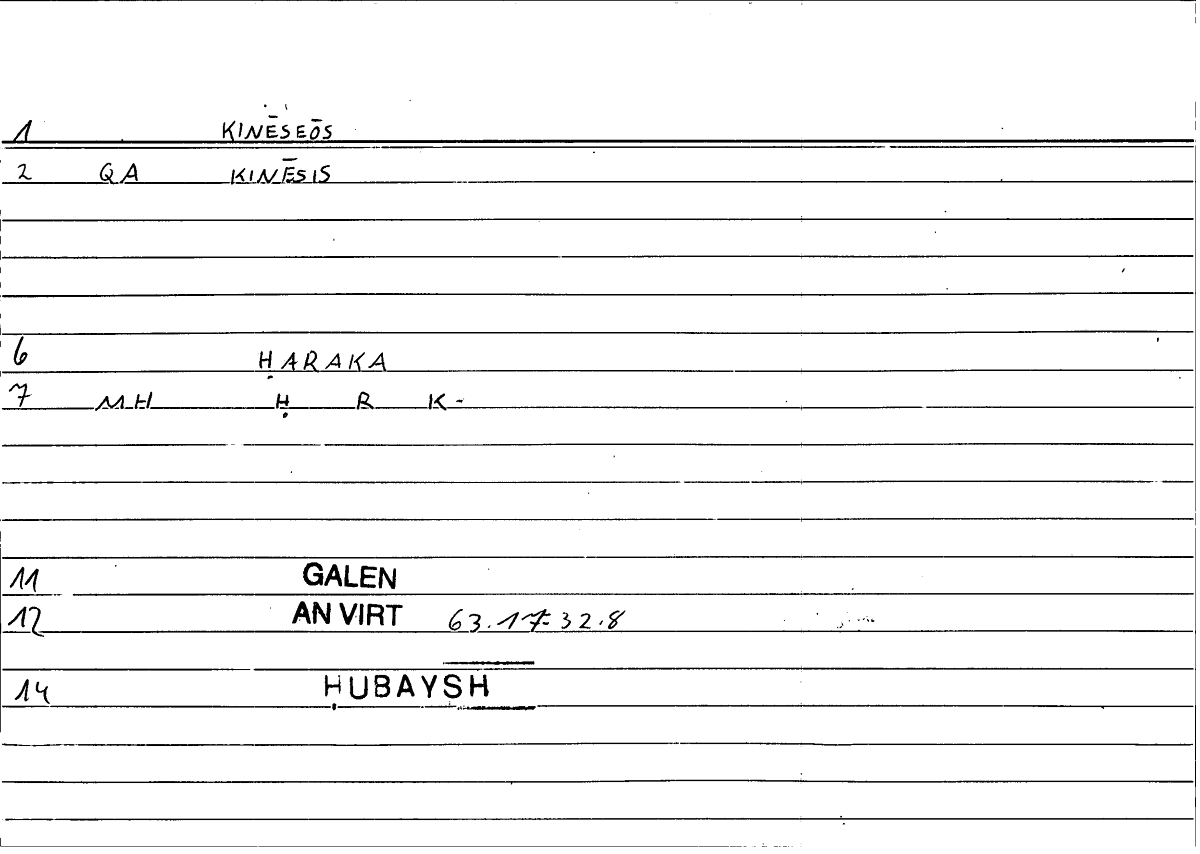 1 KINĒSEŌS
2 QA KINĒSIS
6 ḤARAKA
7 MH Ḥ R K-
11 GALEN
12 AN VIRT 63.17=32.8
14 ḤUBAYSH